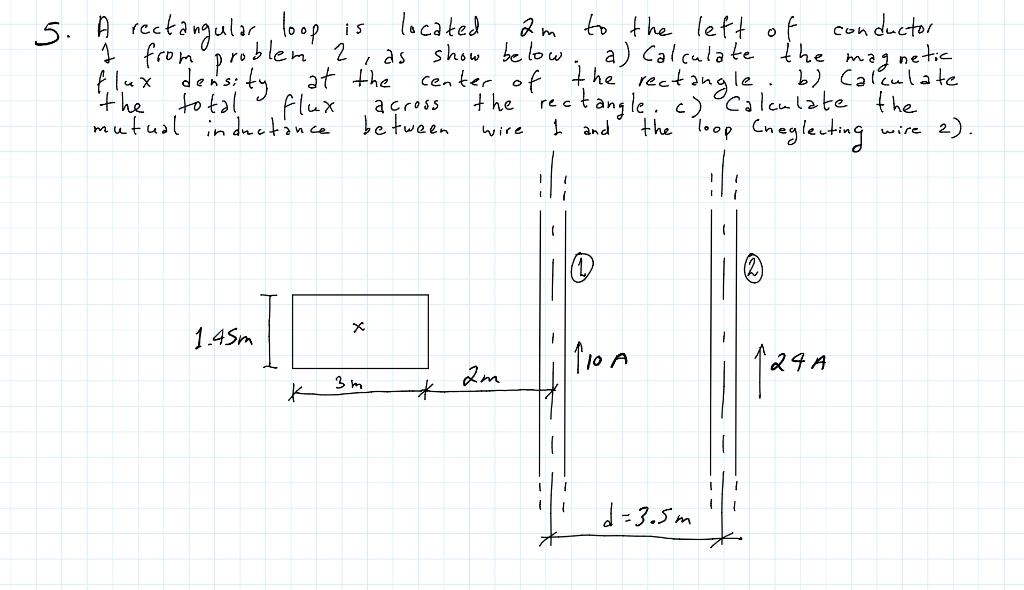 5. A rectangular loop is located 2m to the left of conductor
1 from problem 2, as show below. a) Calculate the magnetic
flux density at the center of the rectangle. b) Calculate
the total flux across the rectangle. c) Calculate the
mutual inductance between wire 1 and the loop (neglecting wire 2).
1 2
1.45m x
↑10 A ↑24 A
3m 2m
d=3.5m